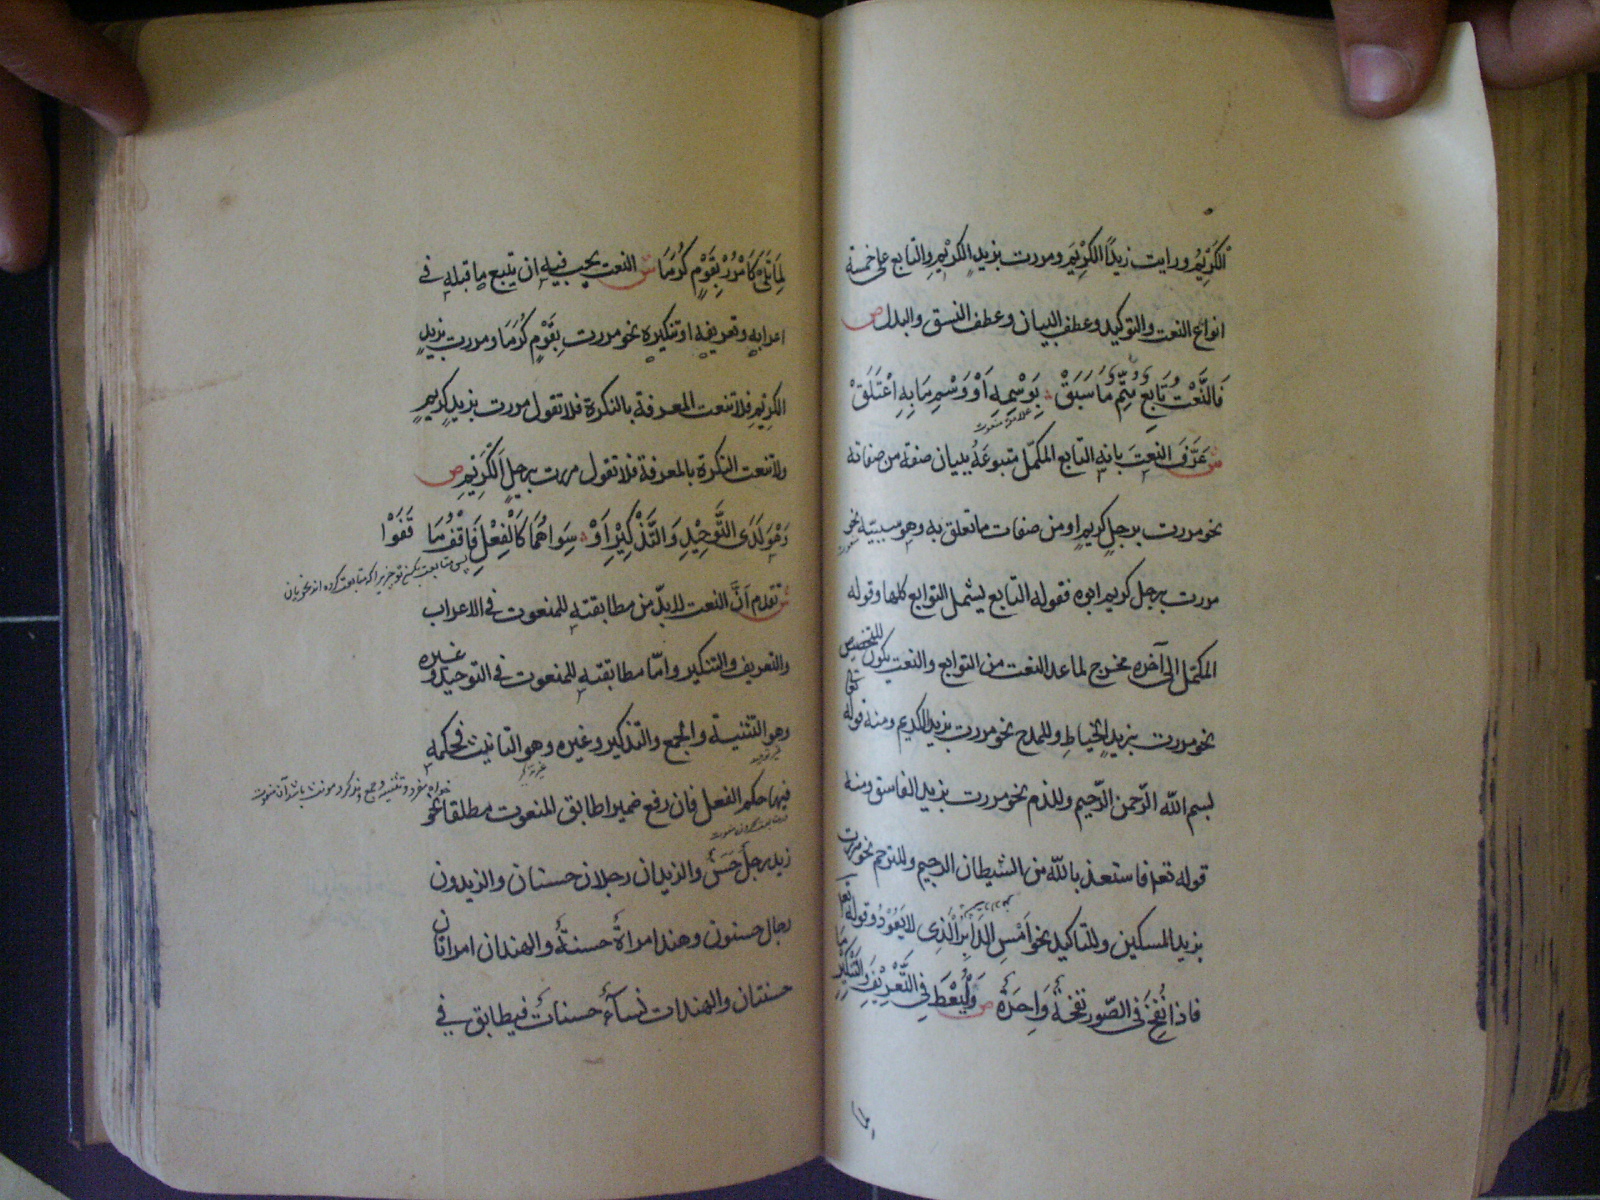 الكَرِيْمُ ورايت زيدًا الكَرِيْمَ ومررت بزيدٍ الكَرِيْمِ والتابع على خمسة
انواع النعت والتوكيد وعطف البيان وعطف النسق والبدل ص
فَالنَّعْتُ تَابِعٌ مُتِمٌّ مَا سَبَقْ بِوَسْمِهِ اَوْ وَسْمِ مَا بِهِ اعْتَلَقْ
ش عَرَّفَ النعتَ بانه التابع المكمّل متبوعَهُ ببيان صفة من صفاته
نحو مررت برجلٍ كريمٍ او من صفات ما تعلق به وهو سببيّه نحو
مررت برجل كريم ابوه فقوله التابع يشمل التوابع كلها وقوله
المكمّل الى آخره مخرج لما عدا النعت من التوابع والنعت يكون للتخصيص
نحو مررت بزيدٍ الخياطِ وللمدح نحو مررت بزيد الكريم ومنه قوله تعا
بسم الله الرّحمن الرّحيم وللذم نحو مررت بزيد الفاسق ومنه
قوله تعا فاستعذ بالله من الشيطان الرجيم وللترحم نحو مررت
بزيد المسكين وللتاكيد نحو اَمْسِ الدَابِرُ الَّذِى لا يَعُوْدُ وقوله تعا
فاذا نُفِخَ فى الصّور نفخةٌ وَاحِدَةٌ ص وَلْيُعْطَ فِى التَّعْرِيْفِ وَالتَّنْكِيْرِ مَا
لِمَا تَلَىْ كَامْرُرْ بِقَوْمٍ كُرَمَا ش النعت يجب فيه ان يتبع ما قبله فى
اعرابه وتعريفه او تنكيره نحو مررت بِقَوْمٍ كُرَمَا ومررت بزيدٍ
الكريم فلا تنعت المعرفة بالنكرة فلا تقول مررت بزيدٍ كريمٍ
ولا تنعت النكرة بالمعرفة فلا تقول مررت برجلٍ الكَرِيْمِ ص
وَهْوَ لَدَى التَّوْحِيْدِ وَالتَّذْكِيْرِ اَوْ سِوَاهُمَا كَالْفِعْلِ فَاقْفُ مَا قَفَوْا
ش تقدم اَنَّ النعت لا بدّ من مطابقته للمنعوت فى الاعراب
والتعريف والتنكير وامّا مطابقته للمنعوت فى التوحيد و غيره
وهو التثنية والجمع والتذكير وغيره وهو التانيث فحكمه
فيها حكم الفعل فان رفع ضميرا طابق المنعوت مطلقا نحو
زيد رجلٌ حَسَنٌ والزيدان رجلان حسنان والزيدون
رجال حسنون وهند امراةٌ حسنةٌ والهندان امراتان
حسنتان والهندات نساءٌ حسناتٌ فيطابق فى